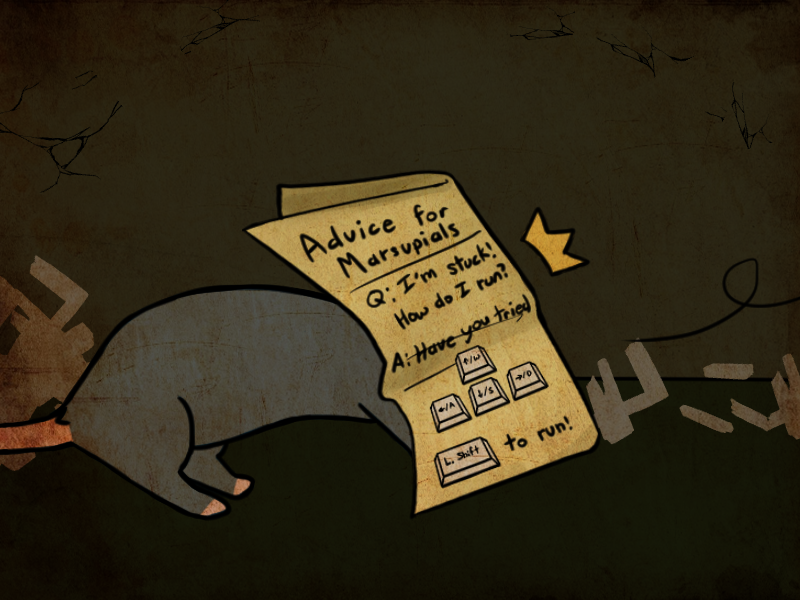 Advice for
Marsupials
Q: I'm stuck!
How do I run?
A: Have you tried
↑/W
←/A ↓/S →/D
L. Shift to run!